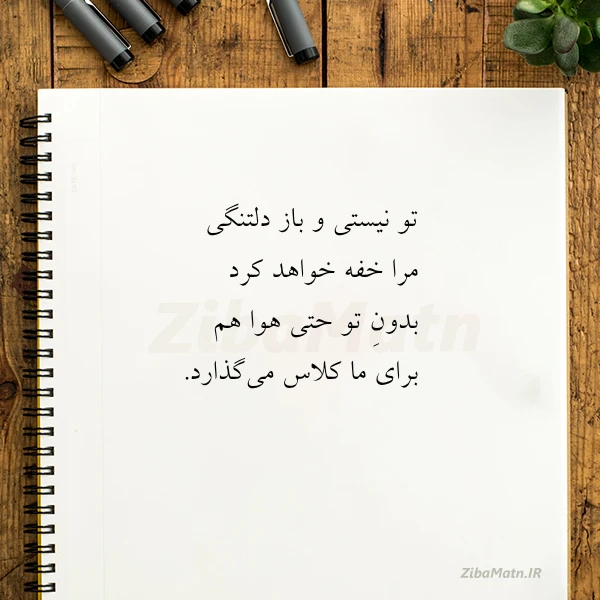 تو نیستی و باز دلتنگی
مرا خفه خواهد کرد
بدونِ تو حتی هوا هم
برای ما کلاس می‌گذارد.
ZibaMatn
ZibaMatn.IR